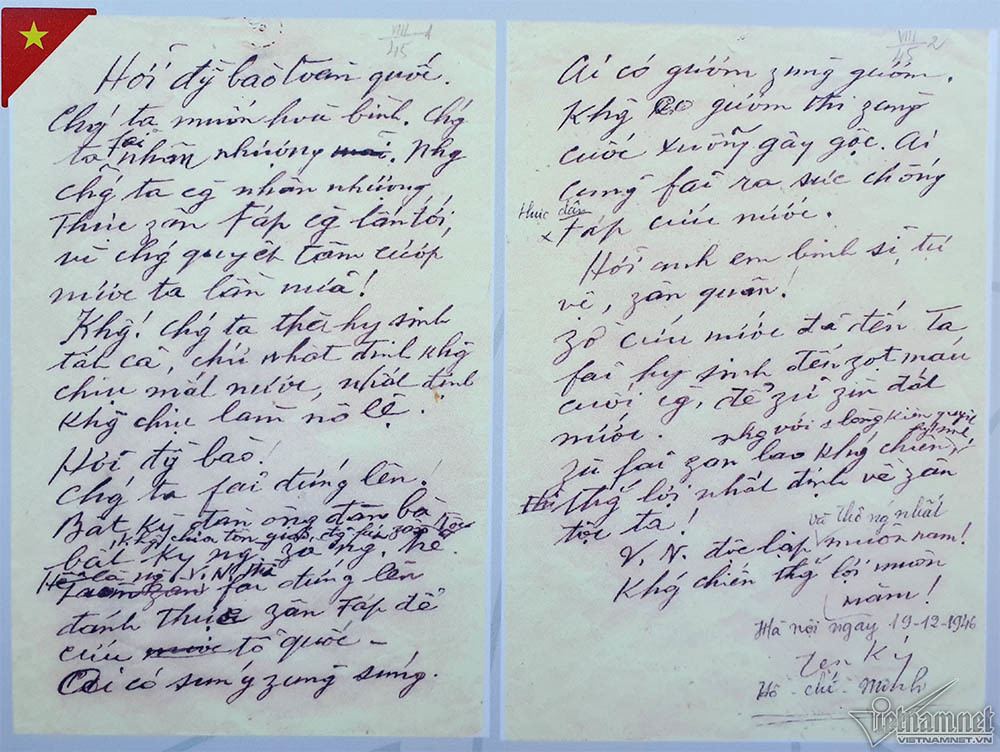 VIII/45 - 1
Hỡi đ̃ bào toàn quốc.
Chg ́ ta muốn hoà bình. Chg ́
ta fải nhân nhượng. Nhg
chg ́ ta cg ̃ nhân nhượng,
Thực zân Fáp cg ̀ lấn tới,
vì chg ́ quyết tâm cướp
nước ta lần nữa!
Khg ! Chg ́ ta thà hy sinh
tất cả, chứ nhất định khg
chịu mất nước, nhất định
khg chịu làm nô lệ.
Hỡi đg ̀ bào!
Chg ́ ta fải đứng lên!
Bất kỳ đàn ông đàn bà
bất kỳ ng. zà ng. trẻ.
khg chia tôn záo, đg ̉ fái, zân tộc
Hễ là ng. V.N. thì
fải đứng lên
đánh thực zân Fáp để
cứu tổ quốc -
Ai có súng zùng súng.
VIII/45 - 2
Ai có gươm zùng gươm.
Khg có gươm thì zùng
cuốc xuổng gậy gộc. Ai
cũng fải ra sức chống
thực dân
x Fáp cứu nước.
Hỡi anh em binh sĩ, tự
vệ, zân quân!
Zờ cứu nước đã đến. Ta
fải hy sinh đến zọt máu
cuối cg ̀, để zữ zìn đất
nước.
Zù fải zan lao khg ́ chiến,
nhg với 1 lòng kiên quyết
hy sinh,
thì thg ́ lợi nhất định về zân
tộc ta!
và thống nhất
V.N. độc lập muôn năm!
Khg ́ chiến thg ́ lợi muôn
năm!
Hà nội ngày 19-12-1946
Hồ - chí - Minh
vietnamnet
VIETNAMNET.VN